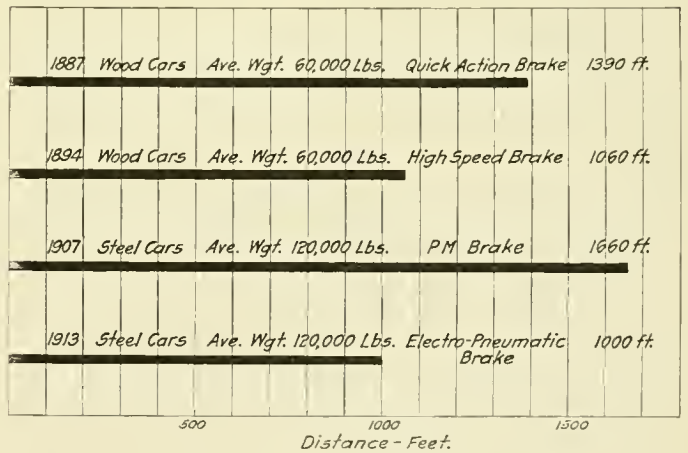 1887 Wood Cars Ave. Wgt. 60,000 Lbs. Quick Action Brake 1390 ft.
1894 Wood Cars Ave. Wgt. 60,000 Lbs. High Speed Brake 1060 ft.
1907 Steel Cars Ave. Wgt. 120,000 Lbs. PM Brake 1660 ft.
1913 Steel Cars Ave. Wgt. 120,000 Lbs. Electro-Pneumatic Brake 1000 ft.
500 1000 1500
Distance - Feet.